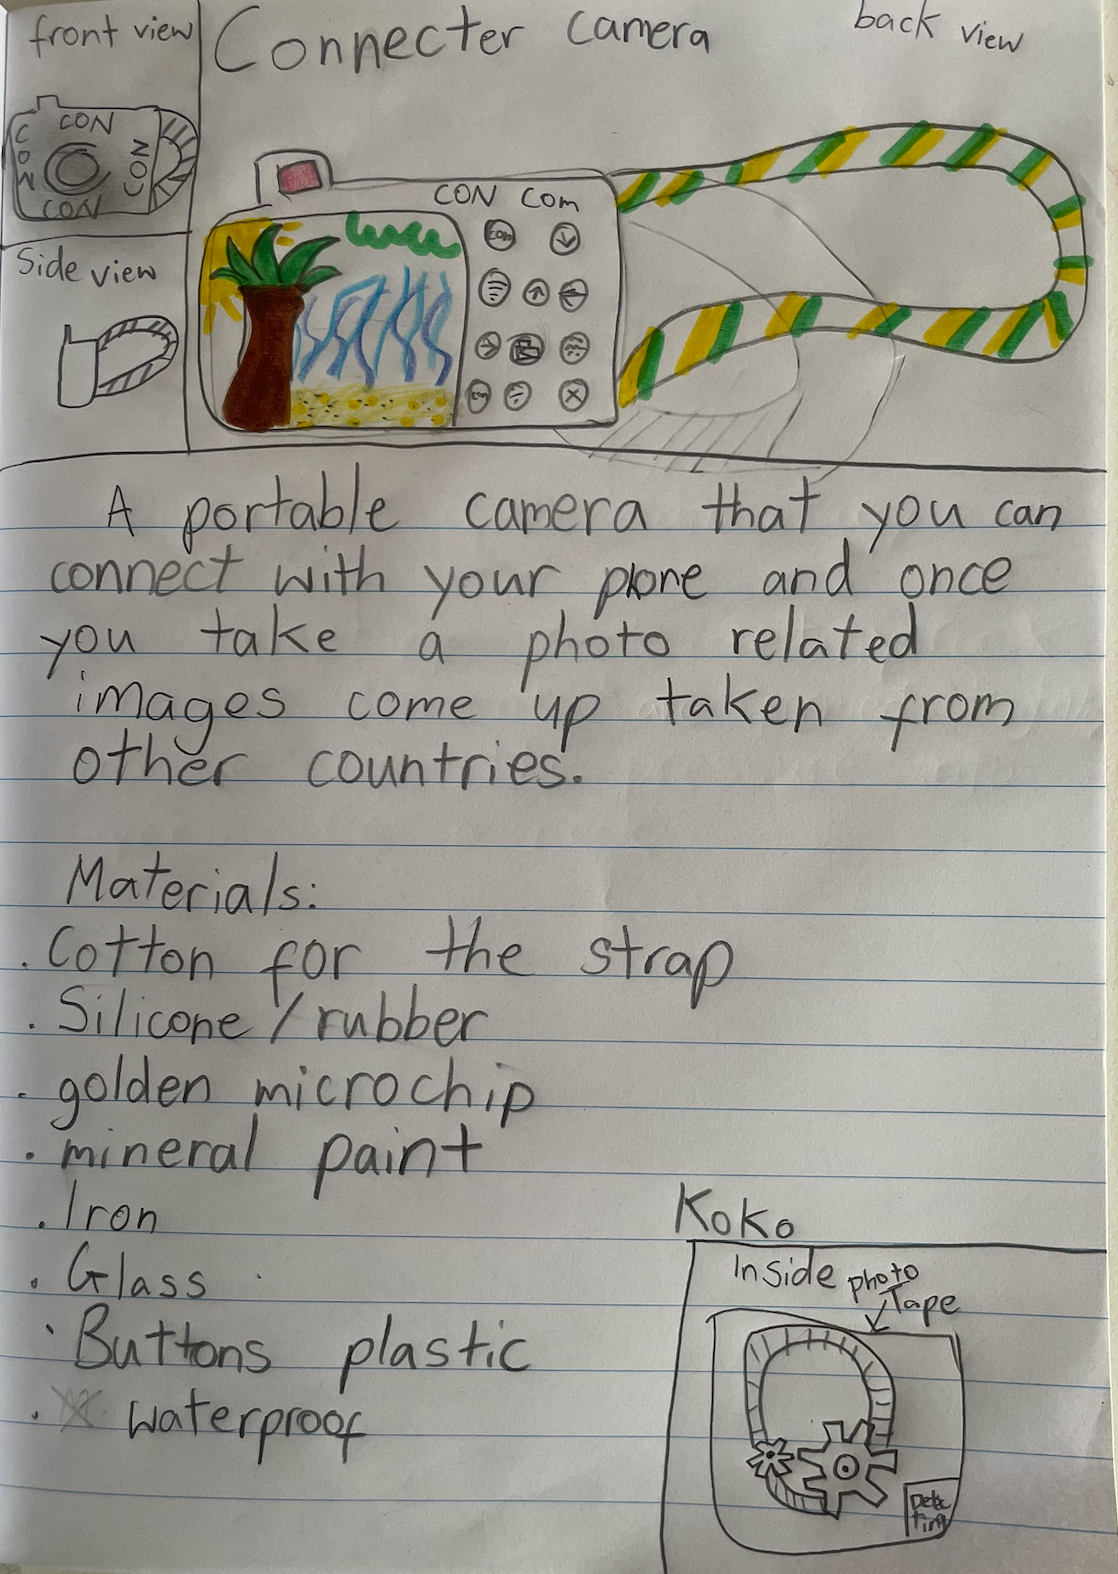 front view
Connecter camera
back view
CON
CON
CON
CON
Side view
CON Com
A portable camera that you can
connect with your phone and once
you take a photo related
images come up taken from
other countries.
Materials:
. Cotton for the strap
. Silicone / rubber
. golden microchip
. mineral paint
. Iron
. Glass
. Buttons plastic
. waterproof
Koko
Inside
photo
Tape